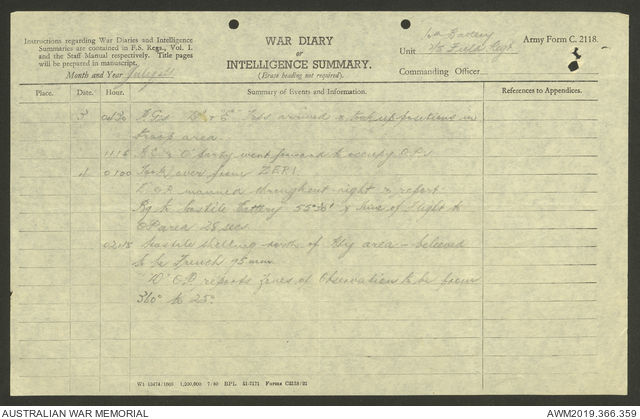 Instructions regarding War Diaries and Intelligence
Summaries are contained in F.S. Regs., Vol. I.
and the Staff Manual respectively. Title pages
will be prepared in manuscript.
Month and Year
WAR DIARY
or
INTELLIGENCE SUMMARY.
(Erase heading not required).
Army Form C. 2118.
Unit Battery
2/5 Field Regt
Commanding Officer
Place.
Date.
Hour.
Summary of Events and Information.
References to Appendices.
3 0430 "D" & "E" Tps arrived & took up positions in
area.
1115 party went forward to occupy O.P's
4 0100 Took over from ZERI
O.P. manned throughout night & report
Bg to hostile battery & time of flight to
OP area 25 secs
hostile shelling south of Bty area – believed
to be French 75 mm.
"D" O.P. reports zones of Observation to be from
360° to 25°
W1 1,200,000 7/40 BPL 51-7171 Forms C2118/22
AUSTRALIAN WAR MEMORIAL
AWM2019.366.359